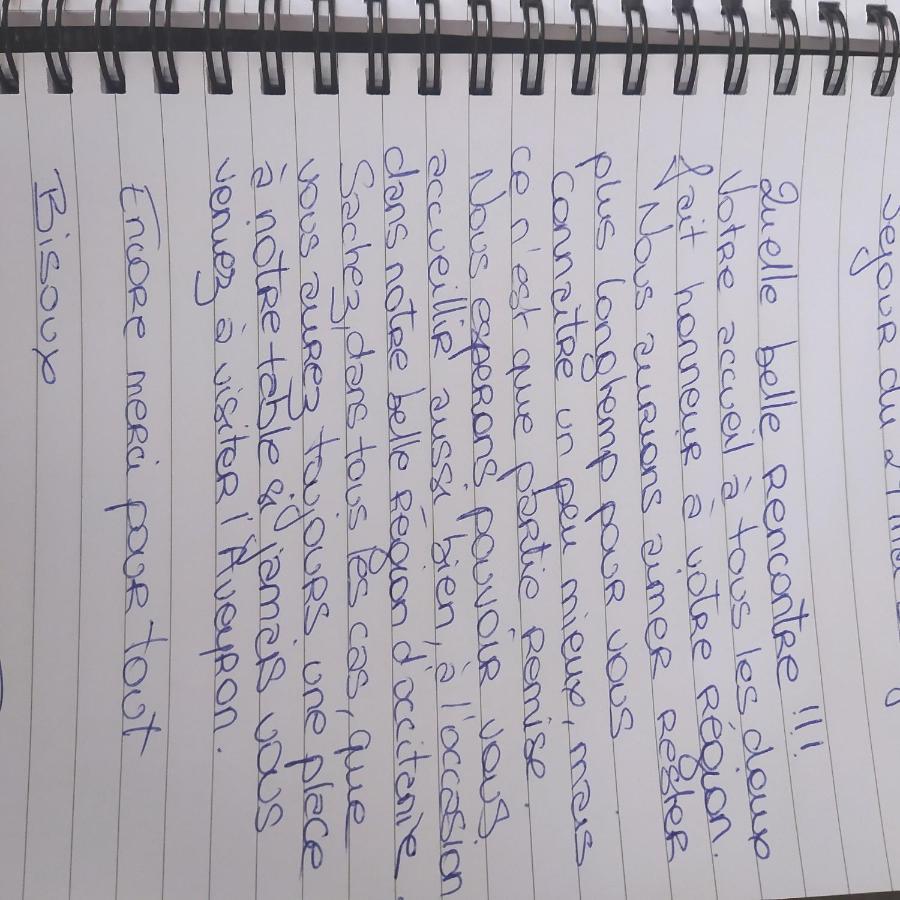 séjour du 21
Quelle belle rencontre !!!
Votre accueil à tous les deux
fait honneur à votre région.
Nous aurions aimer rester
plus longtemp pour vous
connaître un peu mieux, mais
ce n'est que partie remise.
Nous esperons pouvoir vous
accueillir aussi bien, à l'occasion
dans notre belle région d'occitanie.
Sachez, dans tous les cas, que
vous aurez toujours une place
à notre table si jamais vous
venez à visiter l'Aveyron.
Encore merci pour tout
Bisoux